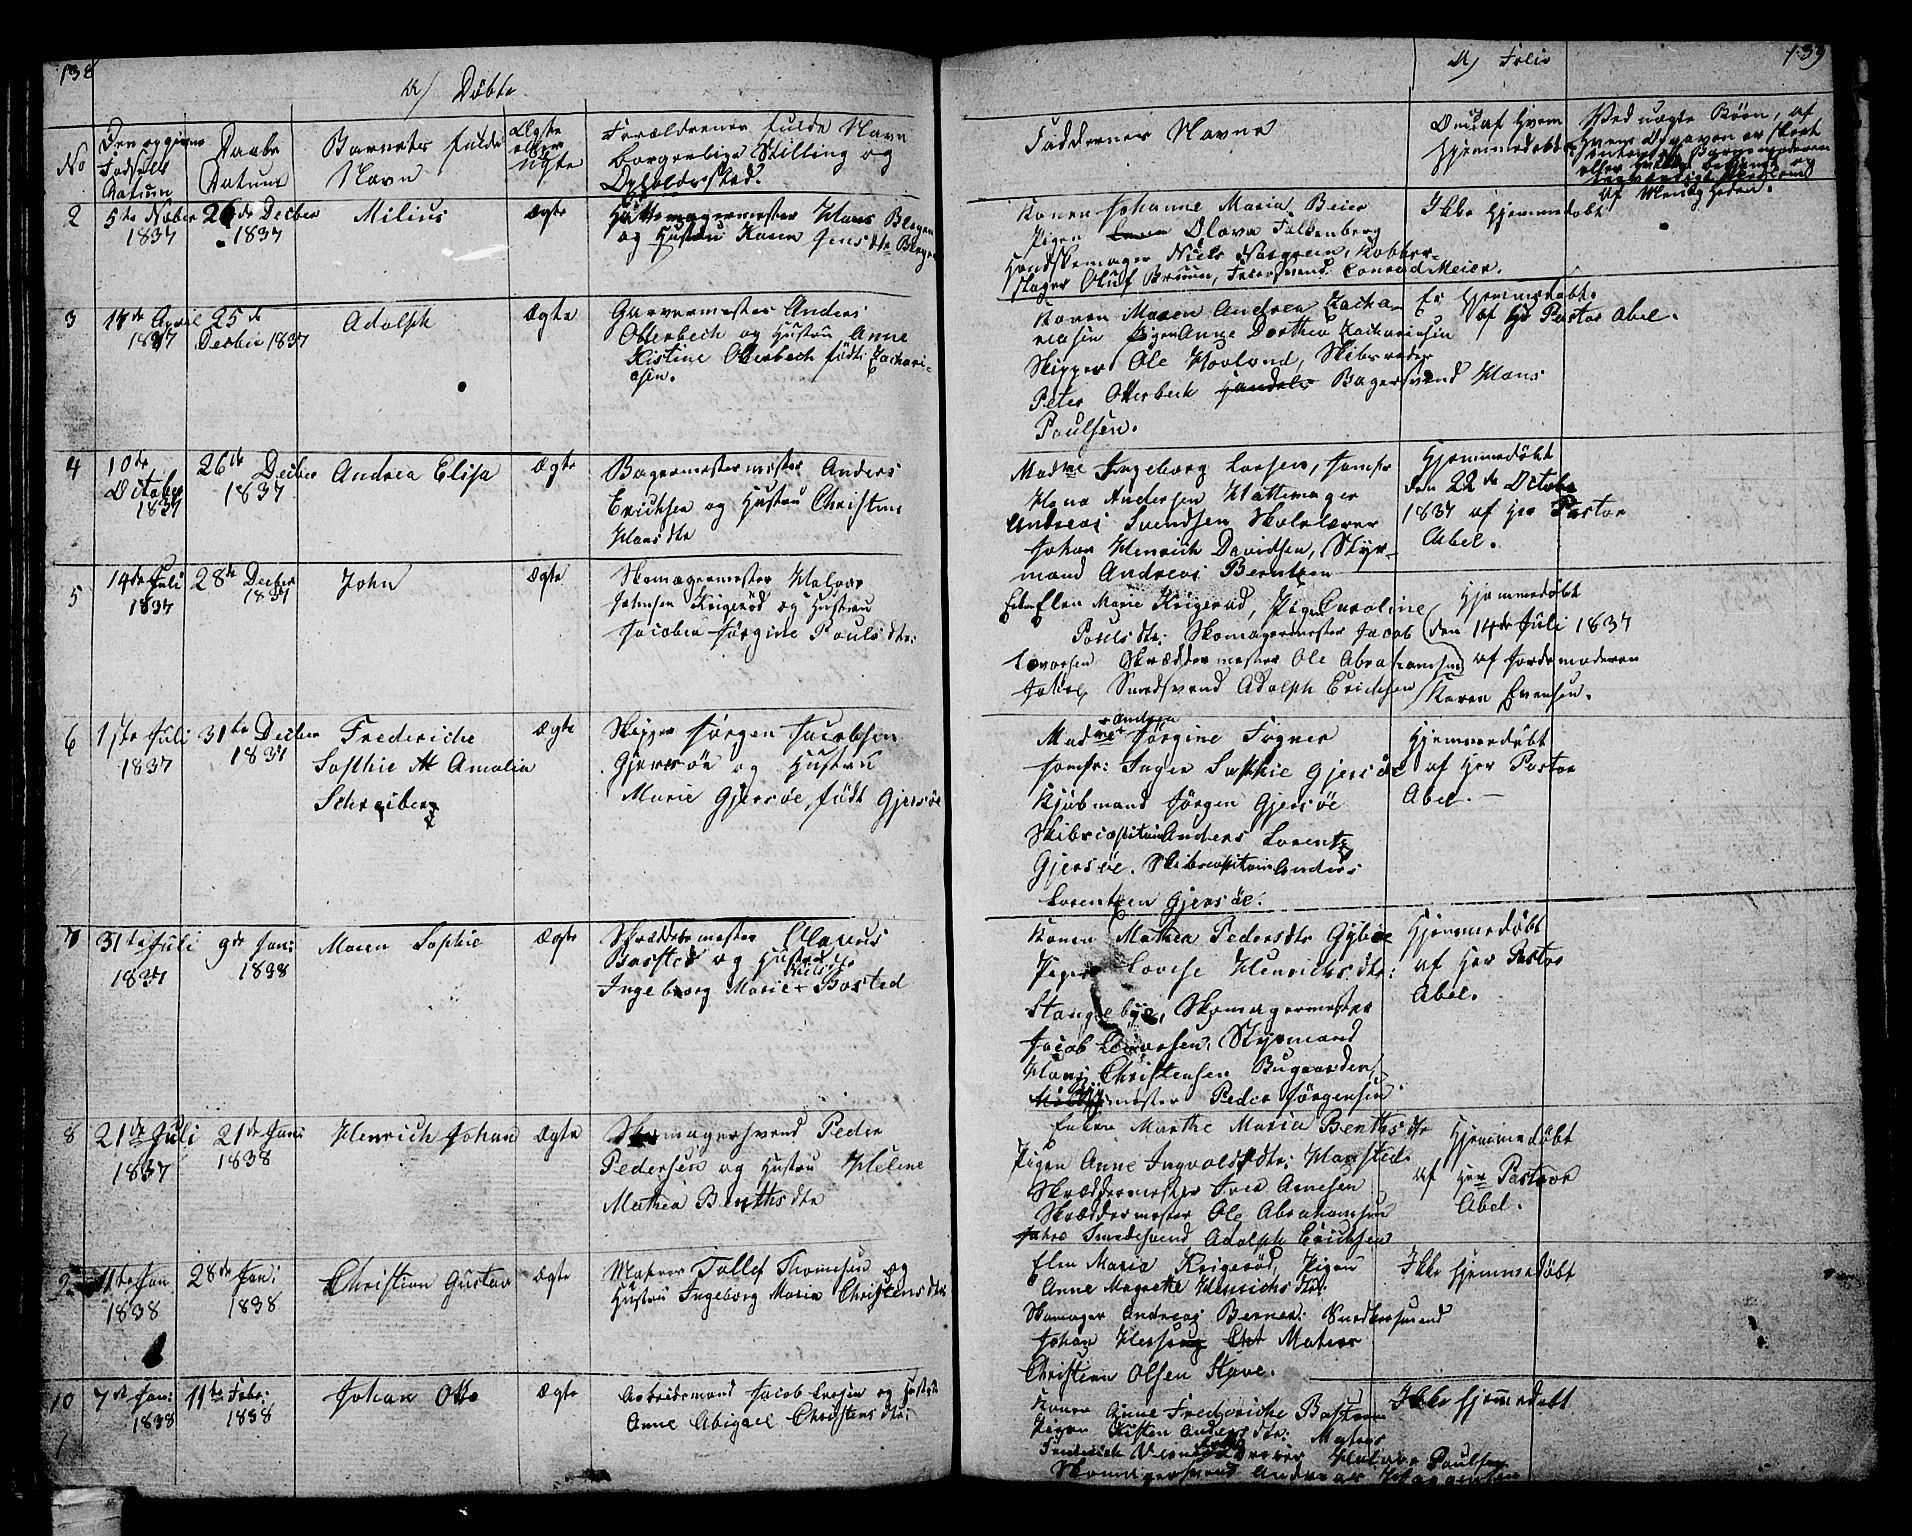 138
a) Döbte
No
Den opgivne Fødsels Datum
Daabs Datum
Barnets fulde Navn
Ægte eller uægte
Forældrenes fulde Navn
borgerlige Stilling og
Opholdssted.
2
5te Nober 1837
26de Decber 1837
Milius
Ægte
Hattemagermester Hans
og Hustru Karen Jensdtr
3
April 1837
25de Decber 1837
Adolph
Ægte
Garvermester Anders
Otterbech og Hustru Anne
Kistine Otterbech født Zachari-
asen.
4
10de October 1837
26de Decber 1837
Andrea Elisa
Ægte
Bagermester Anders
Erichsen og Hustru Christine
Hansdtr
5
14de Juli 1837
28de Decber 1837
John
Ægte
Skomagermester Halvor
Johnsen Krigeröd og Hustru
Jacobea Jørgine Poulsdtr:
6
17de Juli 1837
31te Decber 1837
Frederiche
Sophie Amalia
Schreiber
Ægte
Skipper Jørgen Jacobsen
Gjersøe og Hustru
Marie Gjersøe, født Gjersøe
7
31te Juli 1837
9de Jan: 1838
Maren Sophie
Ægte
Skræddermester
Basted og Hustru
Ingeborg Marie Nielsdtr Basted
8
21de Juli 1837
21de Jan: 1838
Henrich Johan
Ægte
Skomagersvend Peder
Pedersen og Hustru Helene
Mathea Benthsdtr
9
11te Jan 1838
28de Jan: 1838
Christian Gustav
Ægte
Matros Tollef Thomesen og
Hustru Ingeborg Maria Christensdtr:
10
7de Jan: 1838
11te Febr: 1838
Johan Otto
Ægte
Arbeidsmand Jacob Larsen og Hustr
Anne Abigael Christensdtr:
a) Folio
139
Faddernes Navne
Om og af Hvem
hjemmedøbt
Ved uægte Børn, af
Konen Johanne Maria Beier
Pigen Olava Falkenberg
Handskemager Niels Norgreen, Kobber-
slager Oluf Bruun, Conrad Meier.
Ikke hjemmedøbt
Konen Maren Andrea Zacha-
riasen Pigen Anne Dorthea Zachariasen
Skipper Ole Hovland, Skibsreder
Peter Otterbech Bagersvend Hans
Paulsen.
Er hjemmedøbt
af Hr Pastor Abel.
Madme Ingeborg Larsen, Jomfr
Hana Andersen Hattemager
Andreas Svendsen Skolelærer
Johan Henrich Davidsen, Styr-
mand Andreas Berntzen
Hjemmedøbt
den 22de Octobr
1837 af Hr Pastor
Abel.
Elen Marie Krigeröd, Pigen Caroline
Poulsdtr: Skomagermester Jacob
Levorsen Skræddermester Ole Abrahamsen
Fohre Smedsvend Adolph Erichsen
Hjemmedøbt
den 14de Juli 1837
af Jordemoderen
Karen Evensen.
Madme Andrea Jørgine Fogner
Jomfr: Inger Sophie Gjersøe
Kjøbmand Jørgen Gjersøe
Skibscapitain Anders Lorentz
Gjersøe. Skibscapitain Anders
Lorentzen Gjersøe.
Hjemmedøbt
af Her Pastor
Abel.
Konen Mathea Pedersdtr
Pigen Lovise Henrichsdtr:
Stangebye, Skomagermester
Jacob Levorsen, Styrmand
Hans Christensen Bugaarden,
mester Peder Jørgensen
Hjemmedøbt
af Her Pastor
Abel.
Enken Marthe Maria Benthsdtr
Pigen Anne Ingvoldsdtr: Hansted
Skræddermester Iver Arnesen
Skræddermester Ole Abrahamsen
Fohre Smedesvend Adolph Erichsen
Hjemmedøbt
af Her Pastor
Abel.
Elen Maria Krigeröd, Pigen
Anne Magrethe Henrichsdtr:
Skomager Andreas Berner:
Johan Matros
Christian Olsen Have.
Ikke hjemmedøbt
Konen Anne Frederiche
Pigen Kisten Andersdtr: Matros
Frederich Halvor Paulsen
Skomagersvend Andreas
Ikke hjemmedøbt